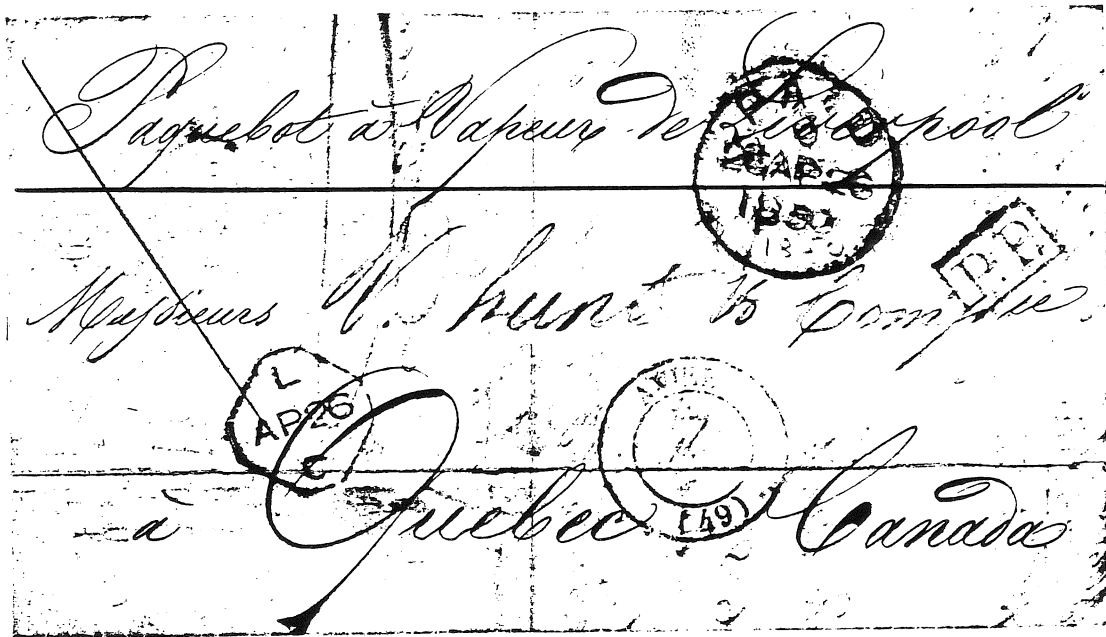 Paquebot à Vapeur de Liverpool
PAID
26 AP 26
P.P.
Messieurs V. hunt & Compie
L
AP 26
C
à Quebec Canada
(49)